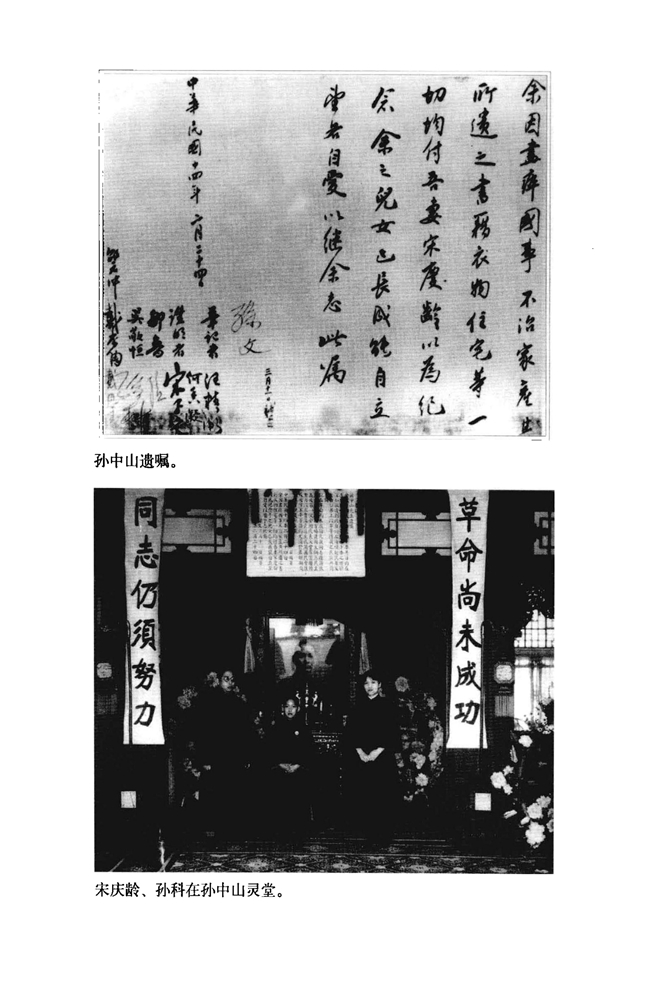 余因盡瘁國事不治家產其
所遺之書籍衣物住宅等一
切均付吾妻宋慶齡以為紀
念余之兒女已長成能自立
望各自愛以继余志此屬
孫文
三月十一日
中華民國十四年二月二十四日
筆記者 汪精衛
證明者 宋子文
何香凝
鄒魯
吳敬恒
戴季陶
邵元冲
孙中山遗嘱。
革命尚未成功
同志仍須努力
宋庆龄、孙科在孙中山灵堂。